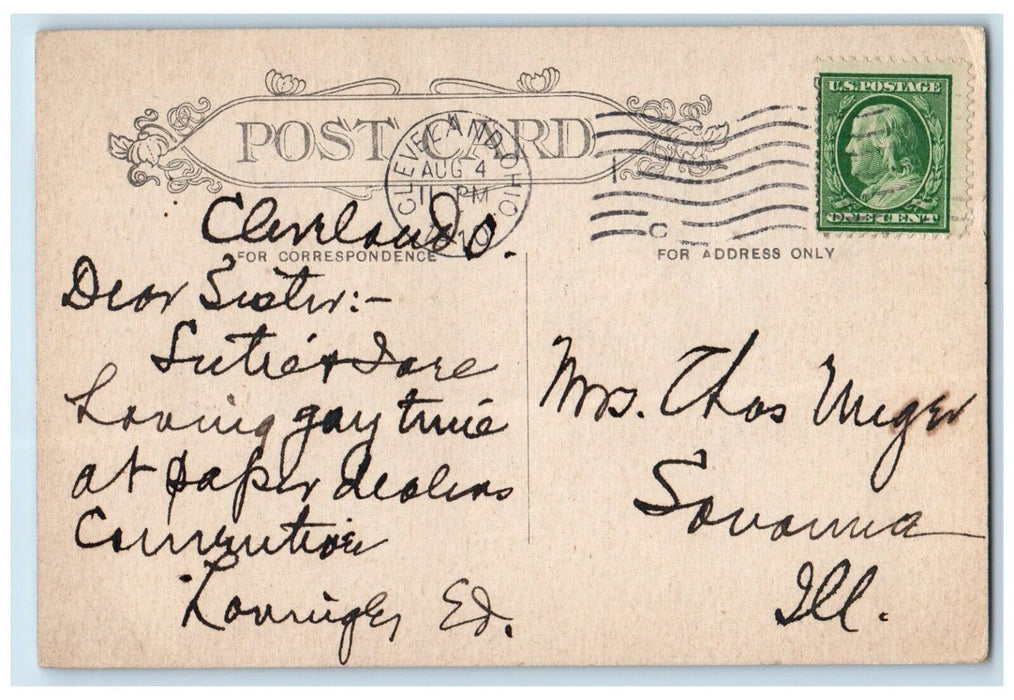 POST CARD
CLEVELAND, OHIO
AUG 4
11 PM
1910
U.S. POSTAGE
ONE CENT
Cleveland O.
FOR CORRESPONDENCE
FOR ADDRESS ONLY
Dear Sister:-
&
having gay time
at paper dealers
Convention
Lovingly Ed.
Mrs. Thos
Savanna
Ill.